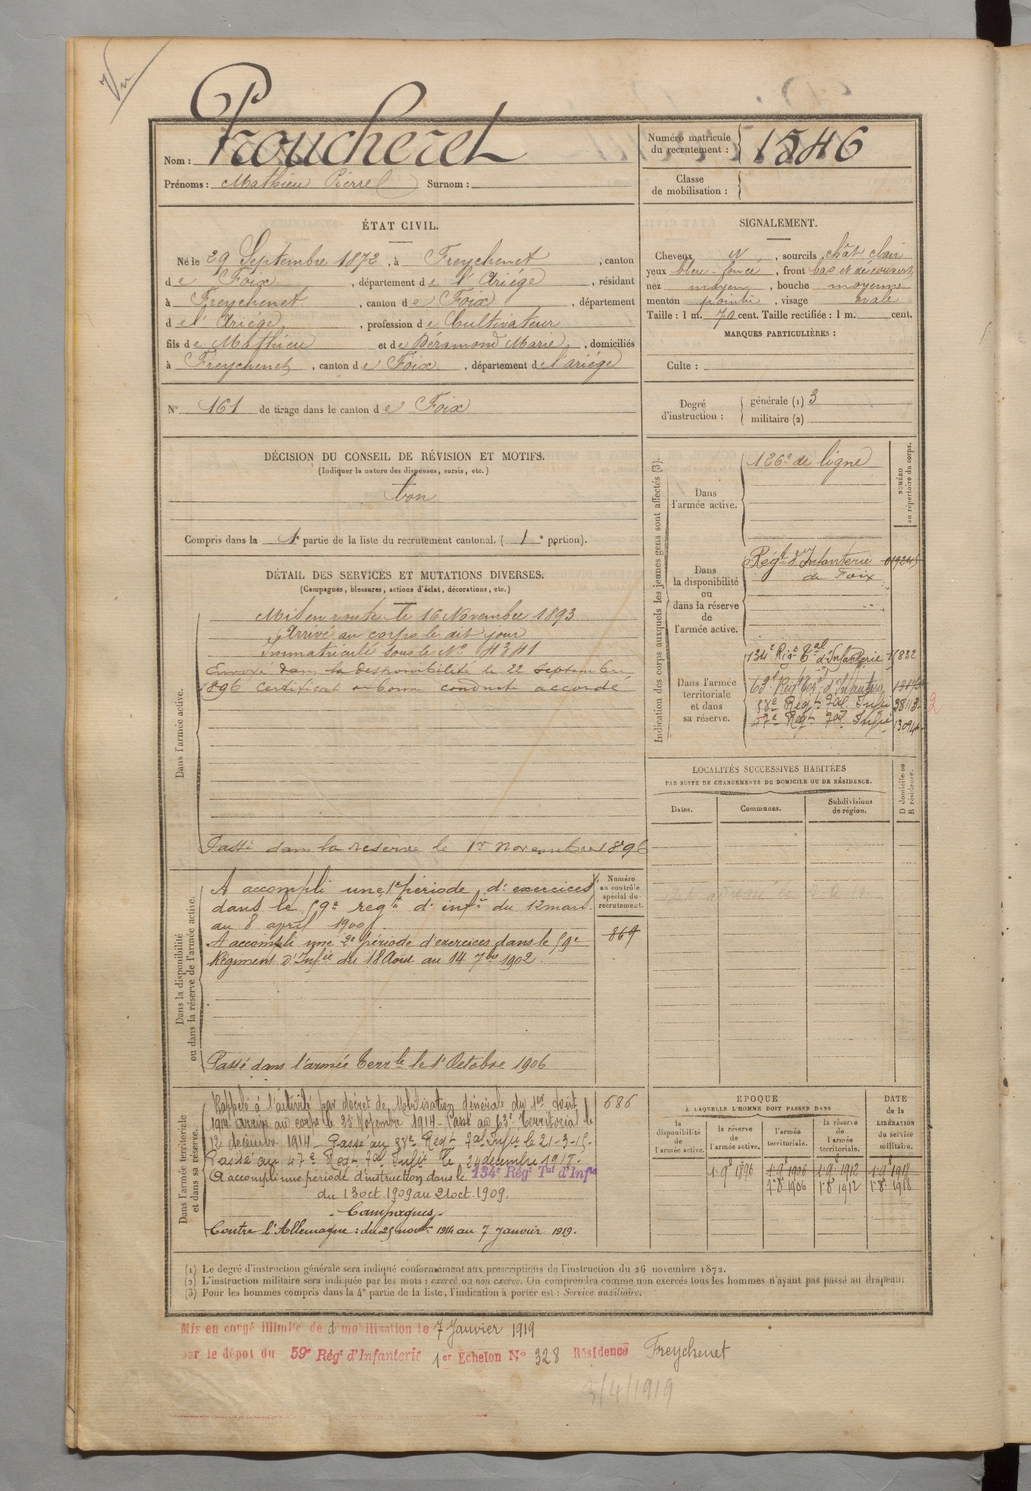 Vu
Nom : Froucheret
Prénoms : Mathieu Pierre Surnom :
Numéro matricule du recrutement : 1546
Classe de mobilisation :
ÉTAT CIVIL.
Né le 29 Septembre 1872, à Freychenet, canton
de Foix, département de l'Ariège, résidant
à Freychenet, canton de Foix, département
de l'Ariège, profession de Cultivateur
fils de Mathieu et de Béramond Marie, domiciliés
à Freychenet, canton de Foix, département de l'ariége
N° 161 de tirage dans le canton de Foix
SIGNALEMENT.
Cheveux N, sourcils chât clair
yeux bleu-foncé, front bas et découvert
nez moyen, bouche moyenne
menton pointu, visage ovale
Taille : 1 m. 70 cent. Taille rectifiée : 1 m. cent.
MARQUES PARTICULIÈRES :
Culte :
Degré d'instruction : générale (1) 3
militaire (2)
DÉCISION DU CONSEIL DE RÉVISION ET MOTIFS.
(Indiquer la nature des dispenses, sursis, etc.)
bon
Compris dans la 1e partie de la liste du recrutement cantonal. (1e portion).
DÉTAIL DES SERVICES ET MUTATIONS DIVERSES.
(Campagnes, blessures, actions d'éclat, décorations, etc.)
Dans l'armée active.
Mis en route le 16 Novembre 1893
Arrivé au corps le dit jour
Immatriculé sous le N° 4341
Envoyé dans la disponibilité le 22 Septembre
1896 certificat de bonne conduite accordé
Passé dans la réserve le 1er Novembre 1896
Indication des corps auxquels les jeunes gens sont affectés (3).
NUMÉRO au répertoire du corps.
Dans l'armée active.
126e de ligne
Dans la disponibilité ou dans la réserve de l'armée active.
Régt d'Infanterie
de Foix
Dans l'armée territoriale et dans sa réserve.
134e Rég. Tal d'Infanterie
63e Régt Tal d'Infanterie
58e Régt Tal Infie
47e Régt Tal Infie
LOCALITÉS SUCCESSIVES HABITÉES
PAR SUITE DE CHANGEMENTS DE DOMICILE OU DE RÉSIDENCE.
D domicile ou R résidence.
Dates. Communes. Subdivisions de région.
Dans la disponibilité ou dans la réserve de l'armée active.
Numéro au contrôle spécial du recrutement.
A accompli une 1e période d'exercices
dans le 59e regt d'infie du 12 mars
au 8 april 1900
864
A accompli une 2e période d'exercices dans le 59e
Régiment d'Infie du 18 Août au 14 7bre 1902.
Passé dans l'armée Terrle le 1er Octobre 1906
Dans l'armée territoriale et dans sa réserve.
Rappelé à l'activité par décret de Mobilisation Générale du 1er Août
1914 arrivé au corps le 25 Novembre 1914. Passé au 63e Territorial le
12 décembre 1914 - Passé au 58e Régt Tal Infie le 21-3-15.
Passé au 47e Régt Tal Infie le 24 decembre 1917.
A accompli une période d'instruction dans le 134e Régt Tal d'Infie
du 13 oct. 1909 au 21 oct. 1909.
Campagnes
Contre l'Allemagne : du 25 novbre 1914 au 7 Janvier 1919.
686
EPOQUE
À LAQUELLE L'HOMME DOIT PASSER DANS
DATE de la LIBÉRATION du service militaire.
la disponibilité de l'armée active. la réserve de l'armée active. l'armée territoriale. la réserve de l'armée territoriale.
1-9e 1896 1-9e 1906 1-9e 1912 1-9e 1918
1-8e 1906 1-8e 1912 1-8e 1918
(1) Le degré d'instruction générale sera indiqué conformément aux prescriptions de l'instruction du 26 novembre 1872.
(2) L'instruction militaire sera indiquée par les mots : exercé ou non exercé. On comprendra comme non exercés tous les hommes n'ayant pas passé au drapeau.
(3) Pour les hommes compris dans la 4e partie de la liste, l'indication à porter est : Service auxiliaire.
Mis en congé illimité de démobilisation le 7 Janvier 1919
par le dépôt du 59e Régt d'Infanterie 1er Echelon N° 328 Résidence Freychenet
3/4/1919